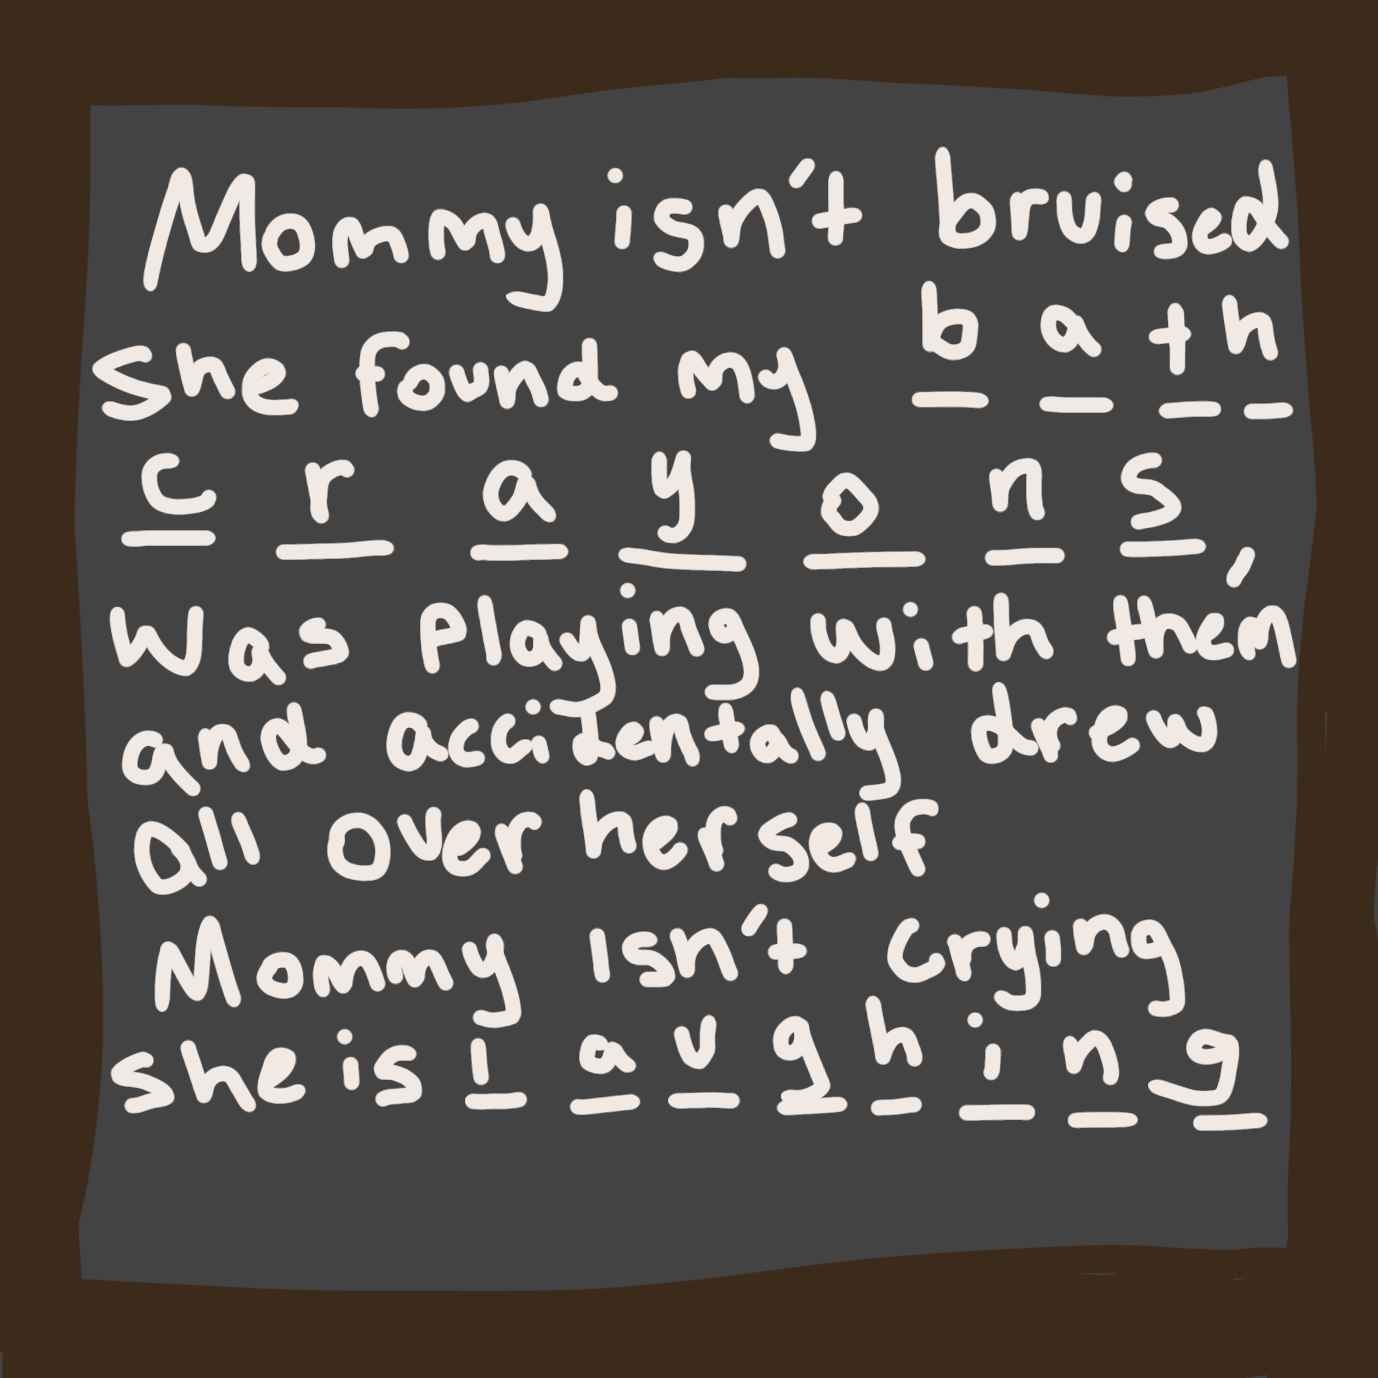 Mommy isn't bruised
She found my b a t h
c r a y o n s,
Was Playing with them
and accidentally drew
all over herself
Mommy Isn't Crying
she is l a u g h i n g